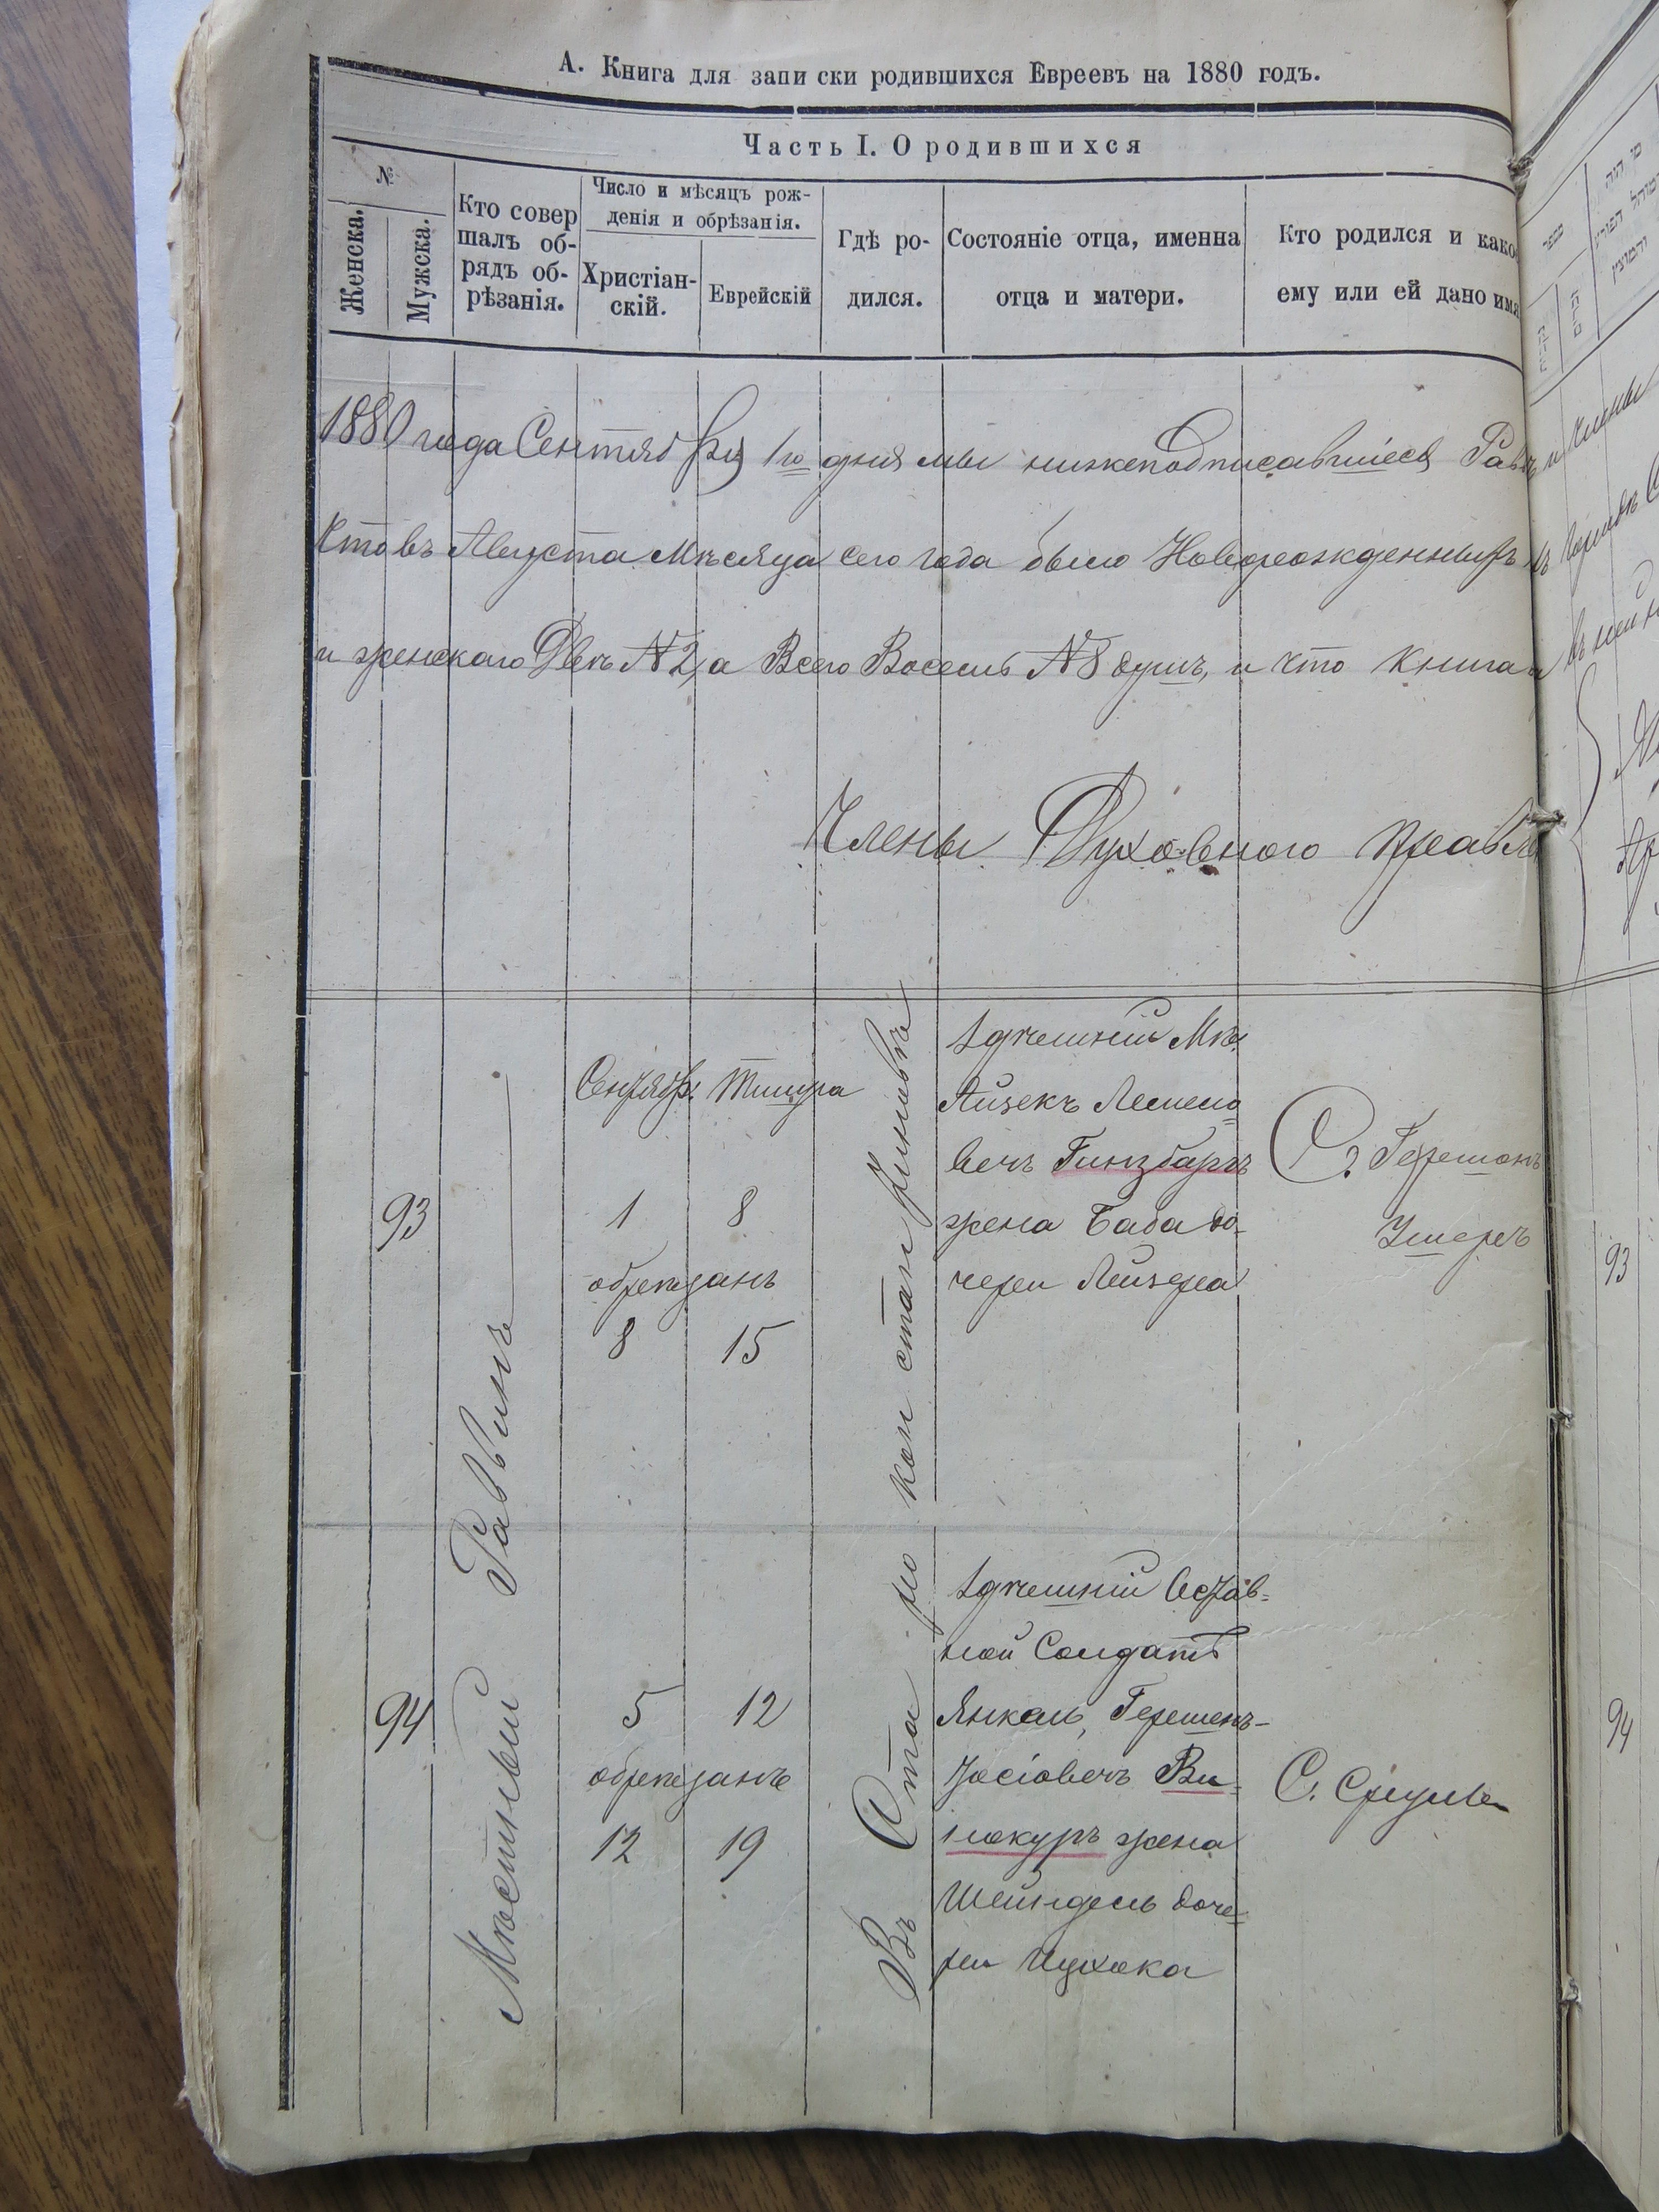 А. Книга для запи ски родившихся Евреевъ на 1880 годъ.
Часть I. О родившихся
№
Женска.
Мужска.
Кто совер
шалъ об-
рядъ об-
рѣзанія.
Число и мѣсяцъ рож-
денія и обрѣзанія.
Христіан-
скій.
Еврейскій
Гдѣ ро-
дился.
Состояніе отца, именна
отца и матери.
Кто родился и како
ему или ей дано имя
1880 года Сентября 1го дня мы нижеподписавшіеся Рав
что въ Августа мѣсяца сего года было Новорожденныхъ
и женскаго Двѣ №2, а Всего Восемь №8 душъ, и что книга
Члены Духовного Правле
93
Мѣстный Равинъ
Сентябр. Тишра
1 8
обрѣзанъ
8 15
Въ
по кон стан тиновкѣ
Здѣшній Мѣщ.
Айзекъ
вечъ Гинзбаргъ
жена Баба до-
чери Лейзера
С. Гершонъ
Умеръ
94
5 12
обрѣзанъ
12 19
Здѣшній Остав-
ной Солдатъ
Янкель, Гершенъ-
Іосіовечъ Ви-
нокуръ жена
Шейндель доче-
ри Ицхока
С. Срулъ
93
94